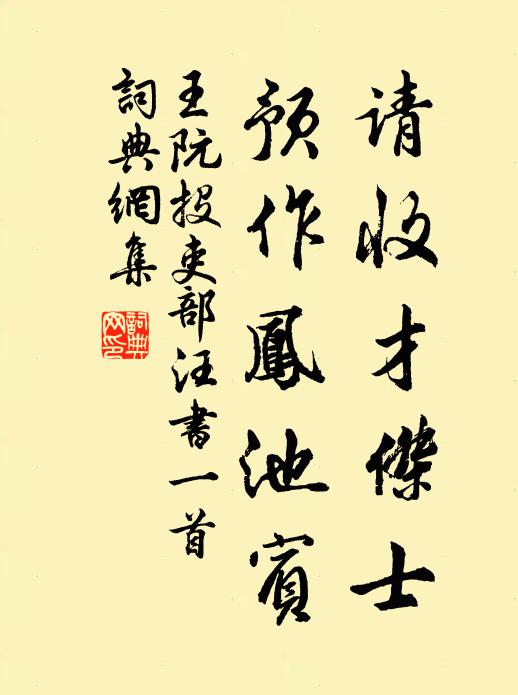 请收才傑士
预作鳳池賓
王阮投吏部汪書一首
詞典網集
詞典網印